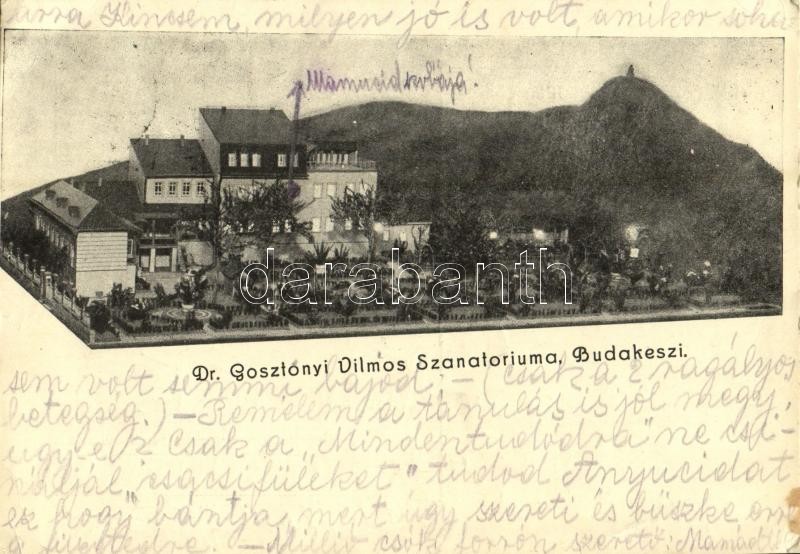 arra Kincsem, milyen jó is volt, amikor soha
"Mamucid kobája!
darabanth
Dr. Gosztonyi Vilmos Szanatoriuma, Budakeszi.
sem volt semmi bajod, – (csak a 2 ragályos
betegség.) – Remélem a tanulás is jól megy,
úgy-e csak a "Mindentudódra" ne csi-
náljál "csacsifüleket" tudod Anyucidat
ez hogy bántja mert úgy szereti és büszke
a – Millió csók forrón szerető